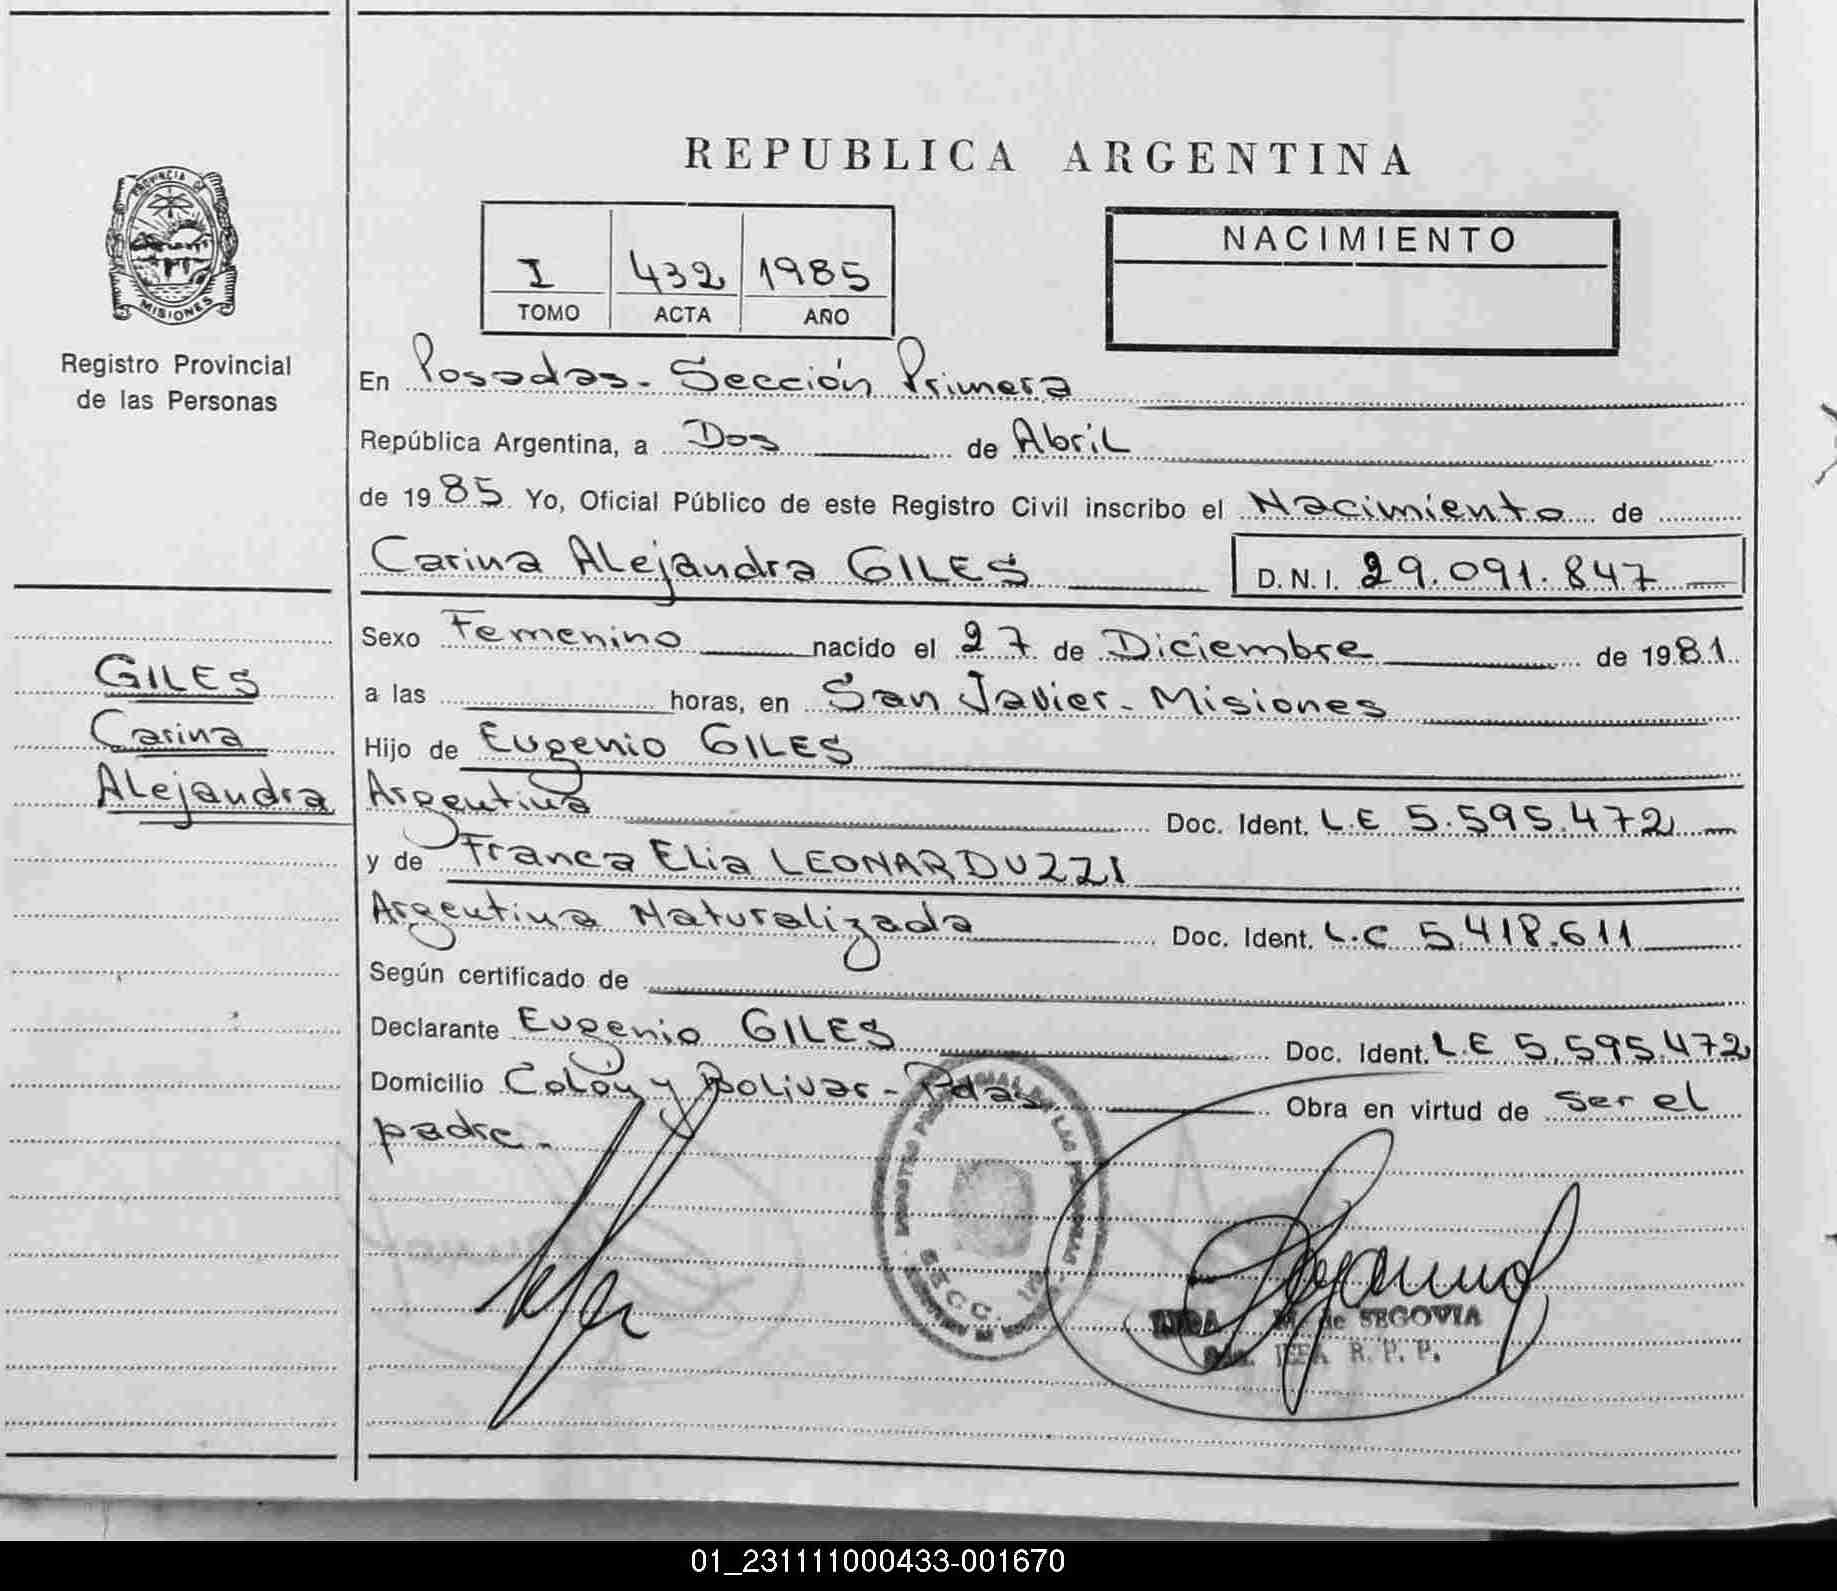 REPUBLICA ARGENTINA
PROVINCIA DE
MISIONES
Registro Provincial
de las Personas
I 432 1985
TOMO ACTA AÑO
NACIMIENTO
En Posadas - Sección Primera
República Argentina, a Dos de Abril
de 1985 Yo, Oficial Público de este Registro Civil inscribo el Nacimiento de
Carina Alejandra GILES D.N.I. 29.091.847
Sexo Femenino nacido el 27 de Diciembre de 1981
a las horas, en San Javier - Misiones
Hijo de Eugenio GILES
Argentina Doc. Ident. L.E 5.595.472
y de Franca Elia LEONARDUZZI
Argentina Naturalizada Doc. Ident. L.C 5.418.611
Según certificado de
Declarante Eugenio GILES Doc. Ident. L.E 5.595.472
Domicilio Colón y Bolivar - Pdas Obra en virtud de ser el
padre.
GILES
Carina
Alejandra
SECC. 1ra
M. de SEGOVIA
JEFA R. P. P.
01_231111000433-001670